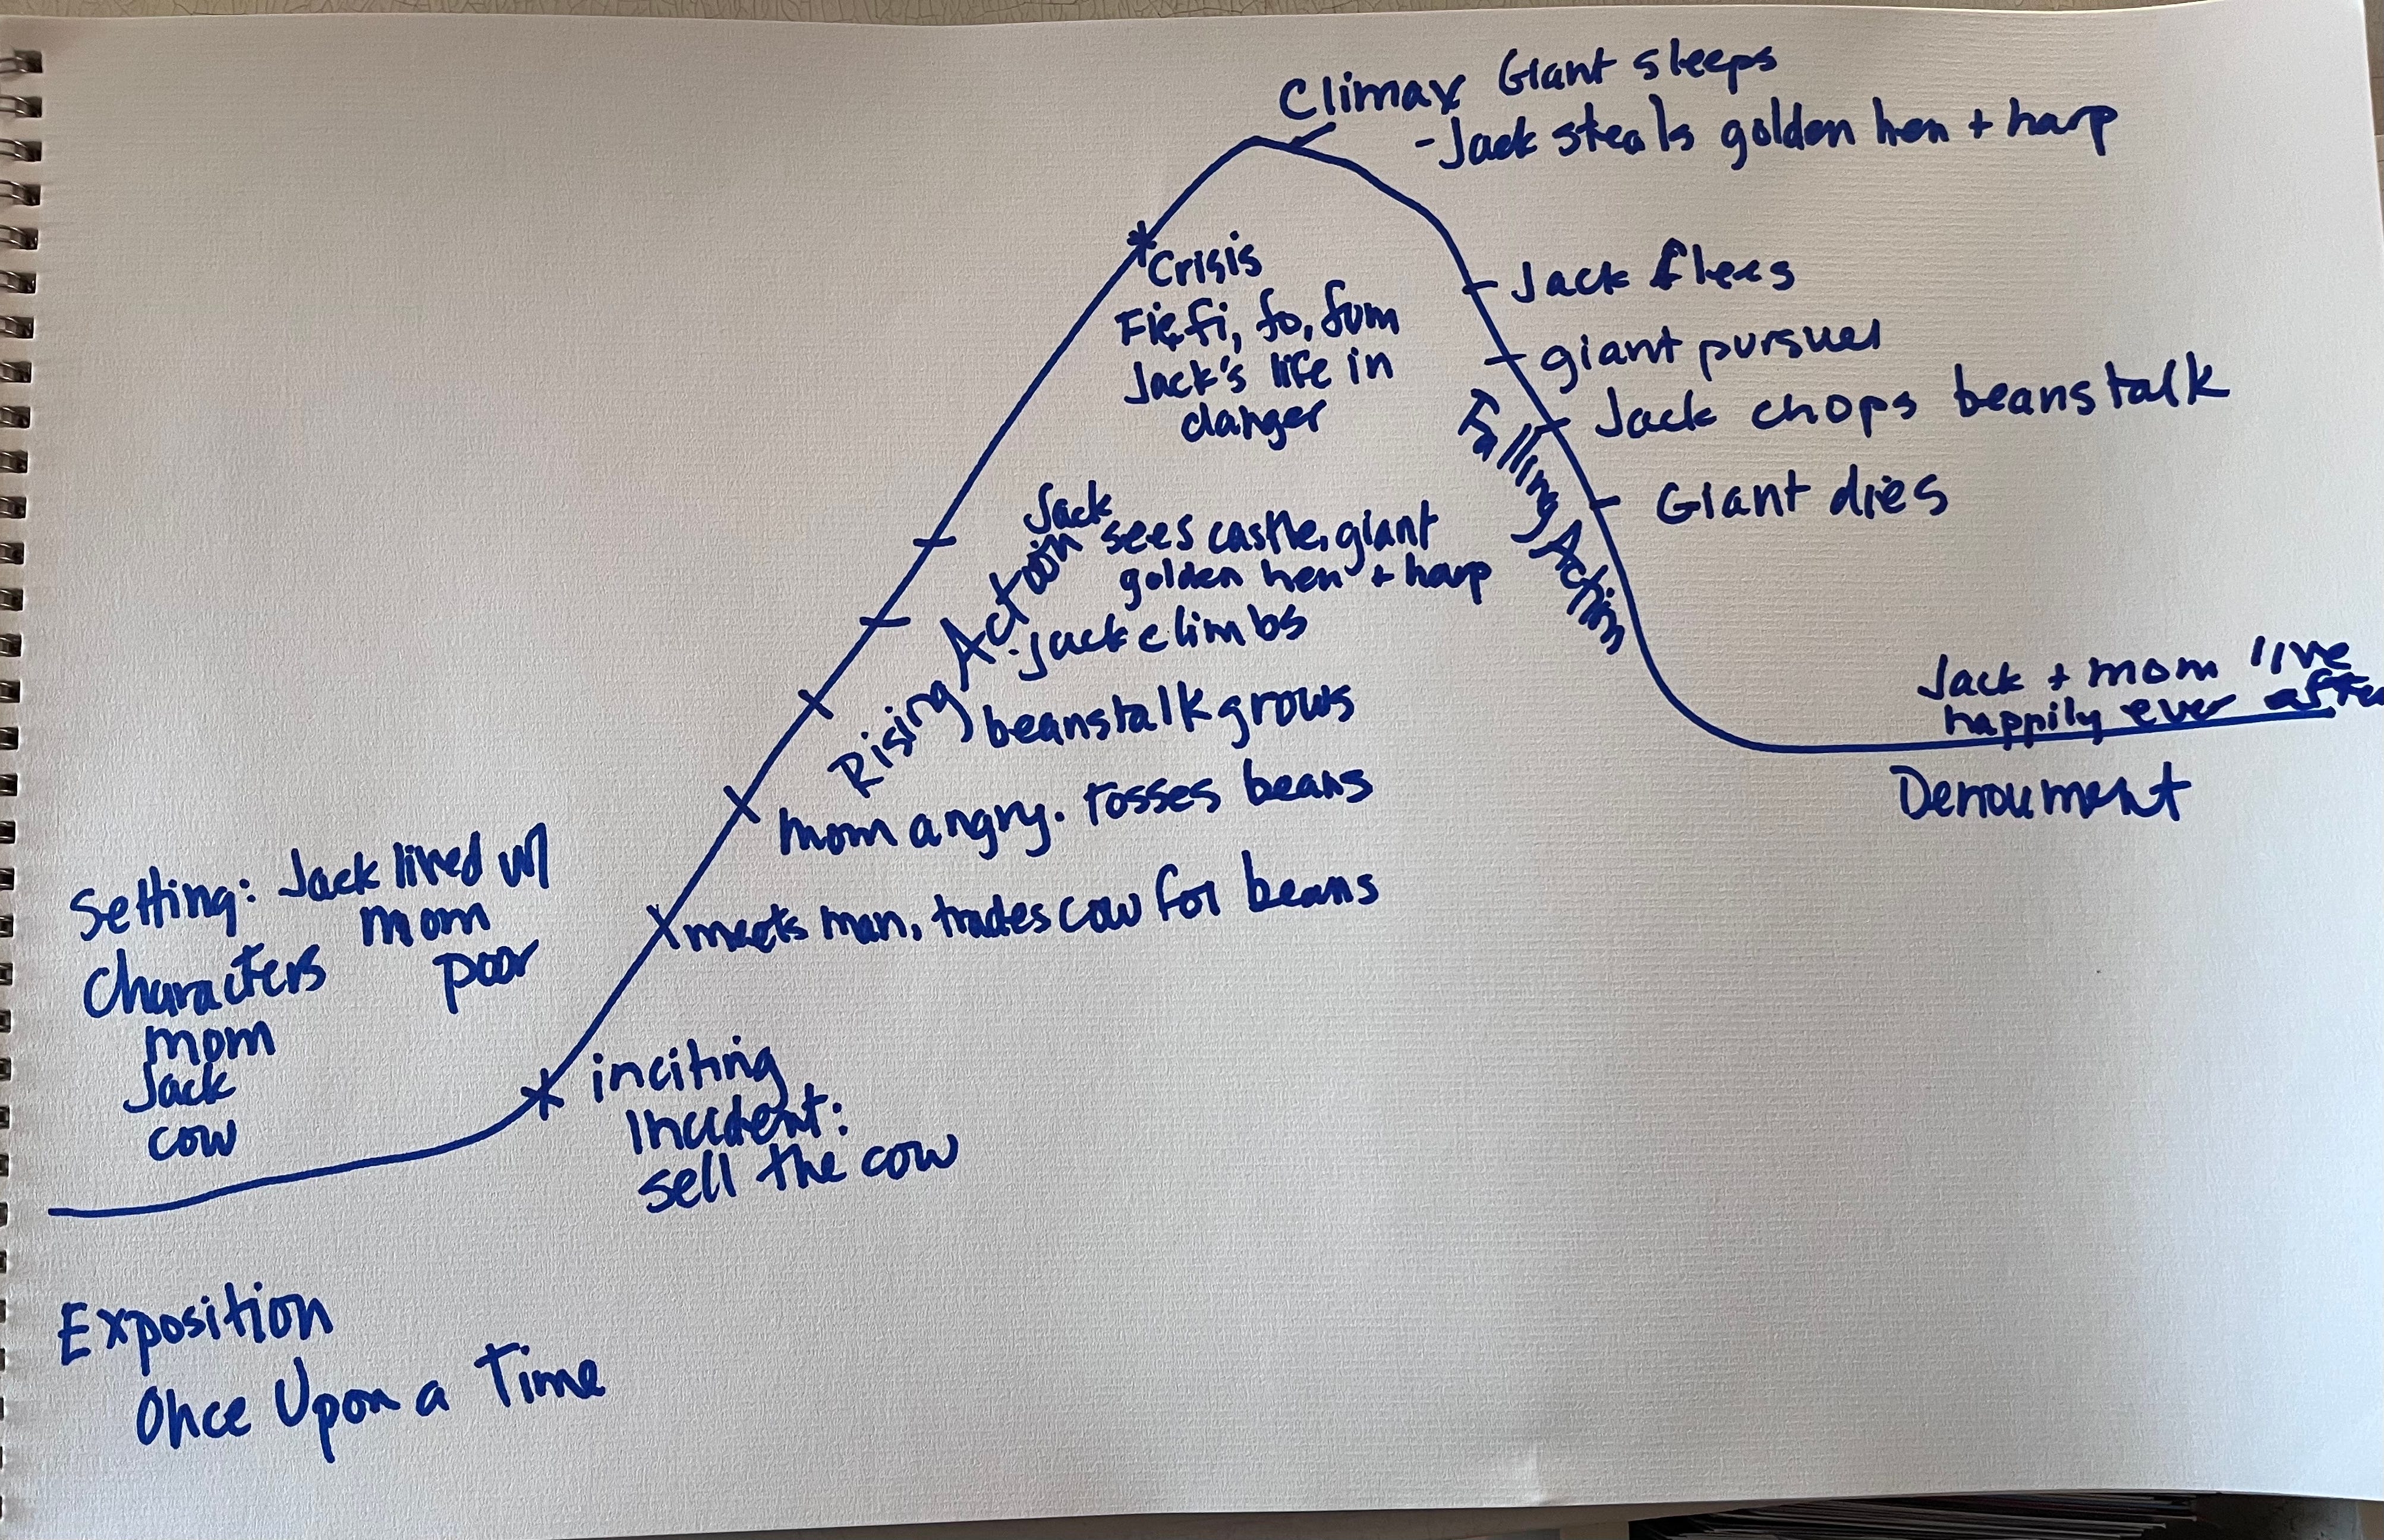 Climax Giant sleeps
- Jack steals golden hen + harp
Crisis
Fie, fi, fo, fum
Jack's life in
danger
Jack flees
giant pursues
Jack chops beanstalk
Giant dies
Falling Action
Jack
sees castle, giant
golden hen + harp
Rising Actoin
. jack climbs
beanstalk grows
mom angry. tosses beans
meets man, trades cow for beans
Jack + mom live
happily ever after
Denoument
Setting: Jack lived w/
mom
poor
Characters
mom
Jack
cow
inciting
Incident:
sell the cow
Exposition
Once Upon a Time